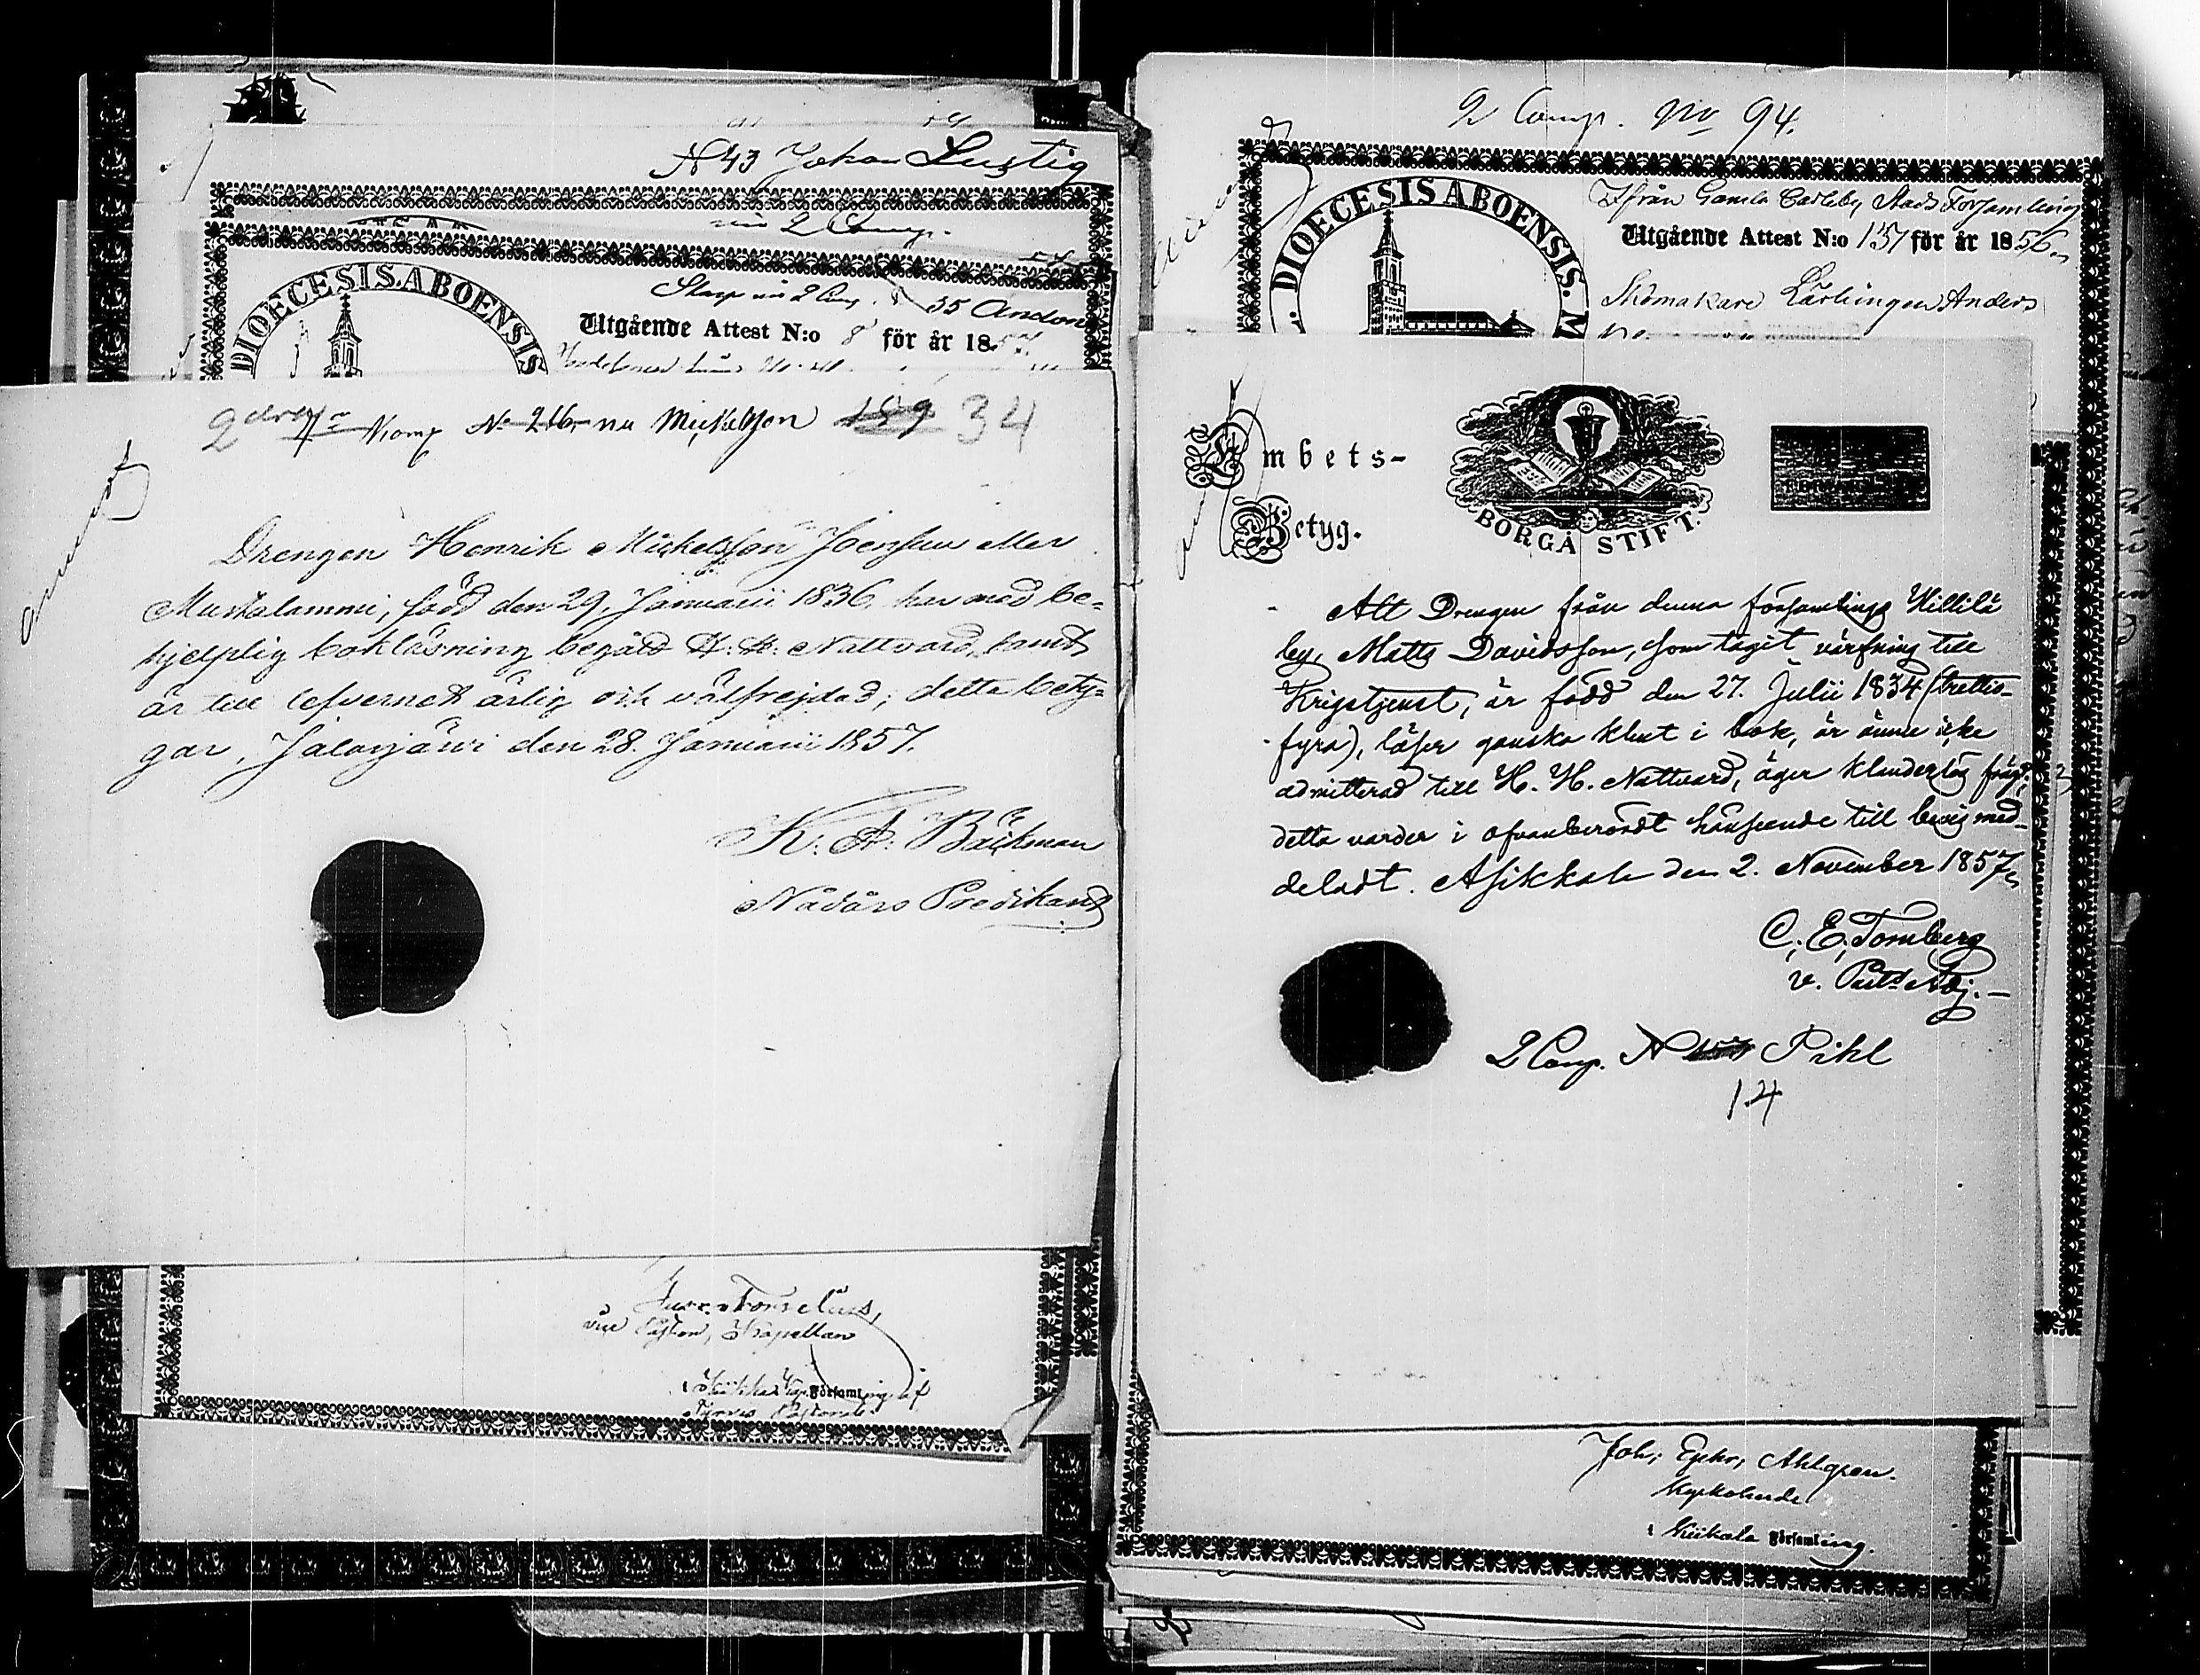 N 43 Johan Lustig
nu 2 Comp.
DIOECESIS.ABOENSIS
Skarp nu 2 Comp. 35 Andon
Utgående Attest N:o 8 för år 1857.
2 Komp N 216, nu Mickelsson 189 34
Drengen Henrik Mickelsson Joensuu eller
Mustalammi, född den 29, Januarii 1836, har med be-
hjelplig bokläsning begått H: H: Nattvard, samt
är till lefvernet ärlig och välfrejdad; detta bety-
gar, Jalasjärvi den 28. Januarii 1857.
K. A. Bäckman
Nådårs Predikant
vice Pastor, Kapellan
i Församling af
2 Comp. No 94.
DIOECESIS ABOENSIS. M
Ifrån Gamla Carleby Stads Församling
Utgående Attest N:o 157 för år 1856.
Skomakare Lärlingen Anders
Embets-
Betyg.
BORGÅ STIFT.
Att Drengen från denna församlings Hillilä
by, Matts Davidsson, som tagit värfning till
Krigstjenst, är född den 27. Julii 1834 (trettio-
fyra), läser ganska klent i bok, är ännu icke
admitterad till H. H. Nattvard, äger klanderlös frägd;
detta varder i ofvanberördt hänseende till bevis med-
deladt. Asikkala den 2. November 1857.
C. E. Tornberg
v. Past. Adj.
2 Comp. N 157 Pihl
14
Joh. Ephr. Ahlgren.
Kyrkoherde
i Kiikala Församling.